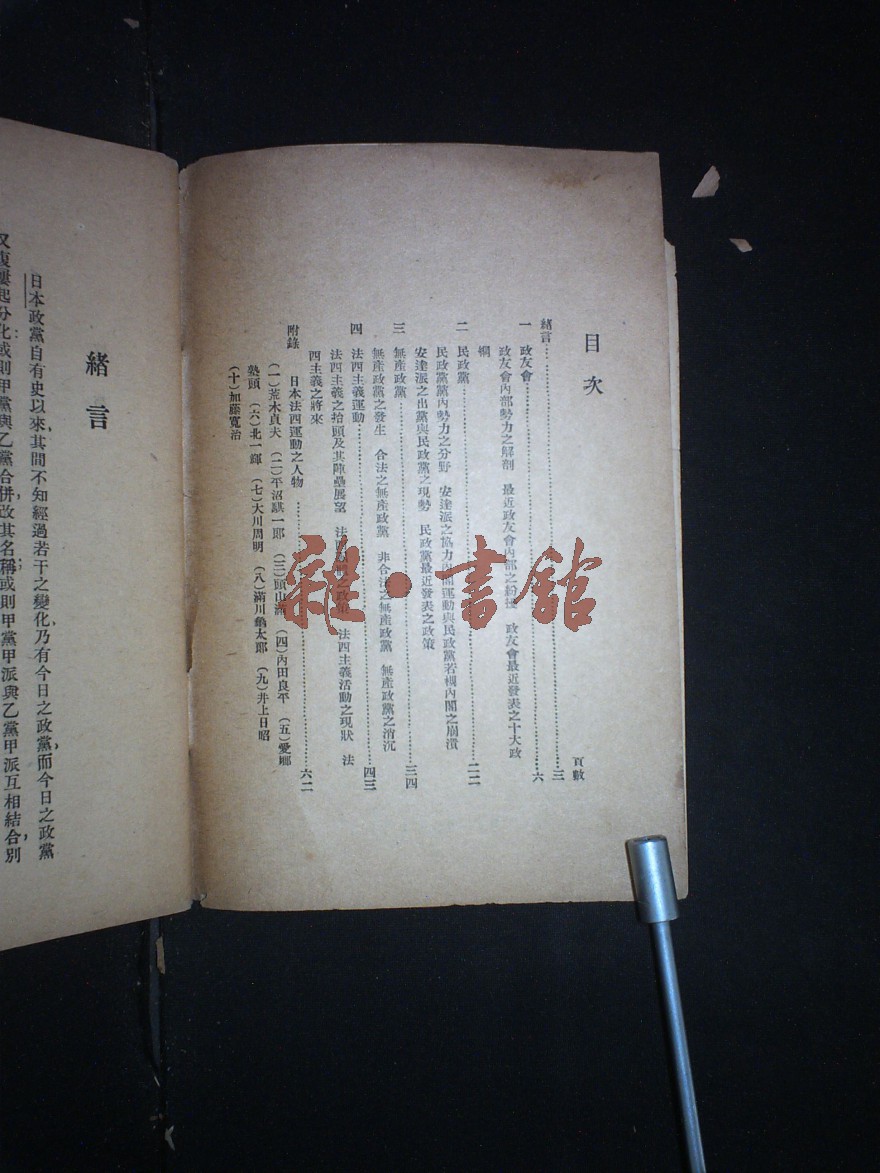 目次
頁數
緒言……三
一 政友會……六
政友會內部勢力之解剖 最近政友會內部之紛 政友會最近發表之十大政
綱
二 民政黨……二二
民政黨黨內勢力之分野 安達派之協力內閣運動與民政黨若槻內閣之崩潰
安達派之出黨與民政黨之現勢 民政黨最近發表之政策
三 無產政黨……三四
無產政黨之發生 合法之無產政黨 非合法之無產政黨 無產政黨之消沉
四 法西主義運動……四三
法西主義之抬頭及其陣壘展望 法 之政策 法西主義活動之現狀 法
西主義之將來
附錄 日本法西運動之人物……六二
(一)荒木貞夫 (二)平沼騏一郎 (三)頭山滿 (四)內田良平 (五)愛鄉
塾頭 (六)北一輝 (七)大川周明 (八)滿川龜太郎 (九)井上日昭
(十)加藤寬治
雜·書館
緒言
日本政黨自有史以來,其間不知經過若干之變化,乃有今日之政黨,而今日之政黨
又復屢起分化,或則甲黨與乙黨合併,改其名稱,或則甲黨甲派與乙黨甲派互相結合,別